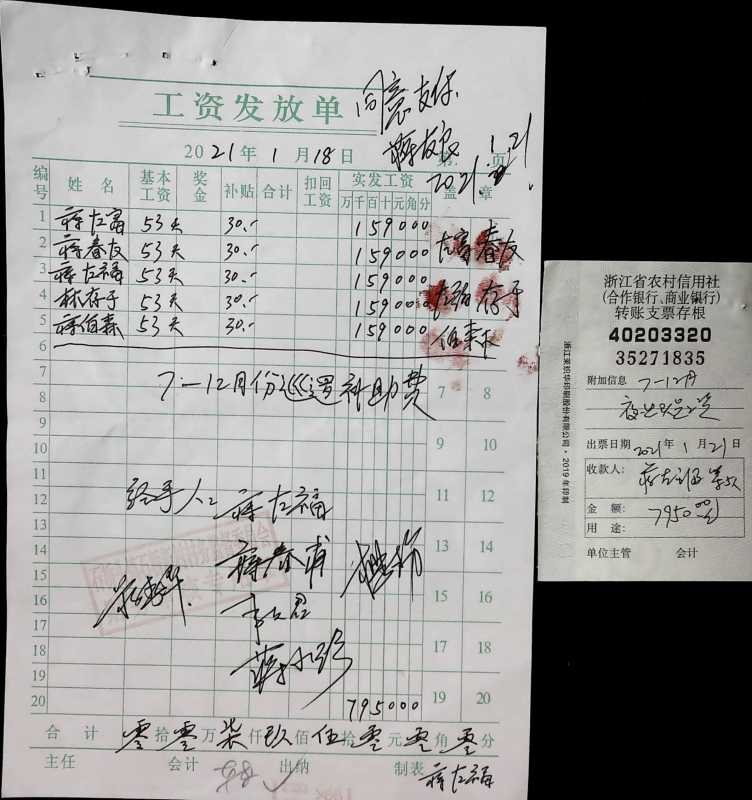 工资发放单
同意支付
1.21
2021年1月18日 第 页
2021.
编号 姓名 基本工资 奖金 补贴 合计 扣回工资 实发工资 盖章
万千百十元角分
1 蒋左富 53天 30.- 159000 左富
2 蒋春友 53天 30.- 159000 春友
3 蒋左福 53天 30.- 159000 左福
4 林存于 53天 30.- 159000 存于
5 蒋伯森 53天 30.- 159000 伯森
6
7 7-12月份巡逻补助费 7 8
8
9 9 10
10
11 11 12
12 经手人: 蒋左福
13 13 14
14
15 15 16
16
17 17 18
18
19 19 20
20 795000
合计 零拾零万柒仟玖佰伍拾零元零角零分
主任 会计 出纳 制表 蒋左福
浙江省农村信用社
(合作银行、商业银行)
转账支票存根
40203320
35271835
附加信息 7-12月
出票日期 2021年1月21日
收款人: 蒋左福等5人
金额: 7950.00元
用途:
单位主管 会计